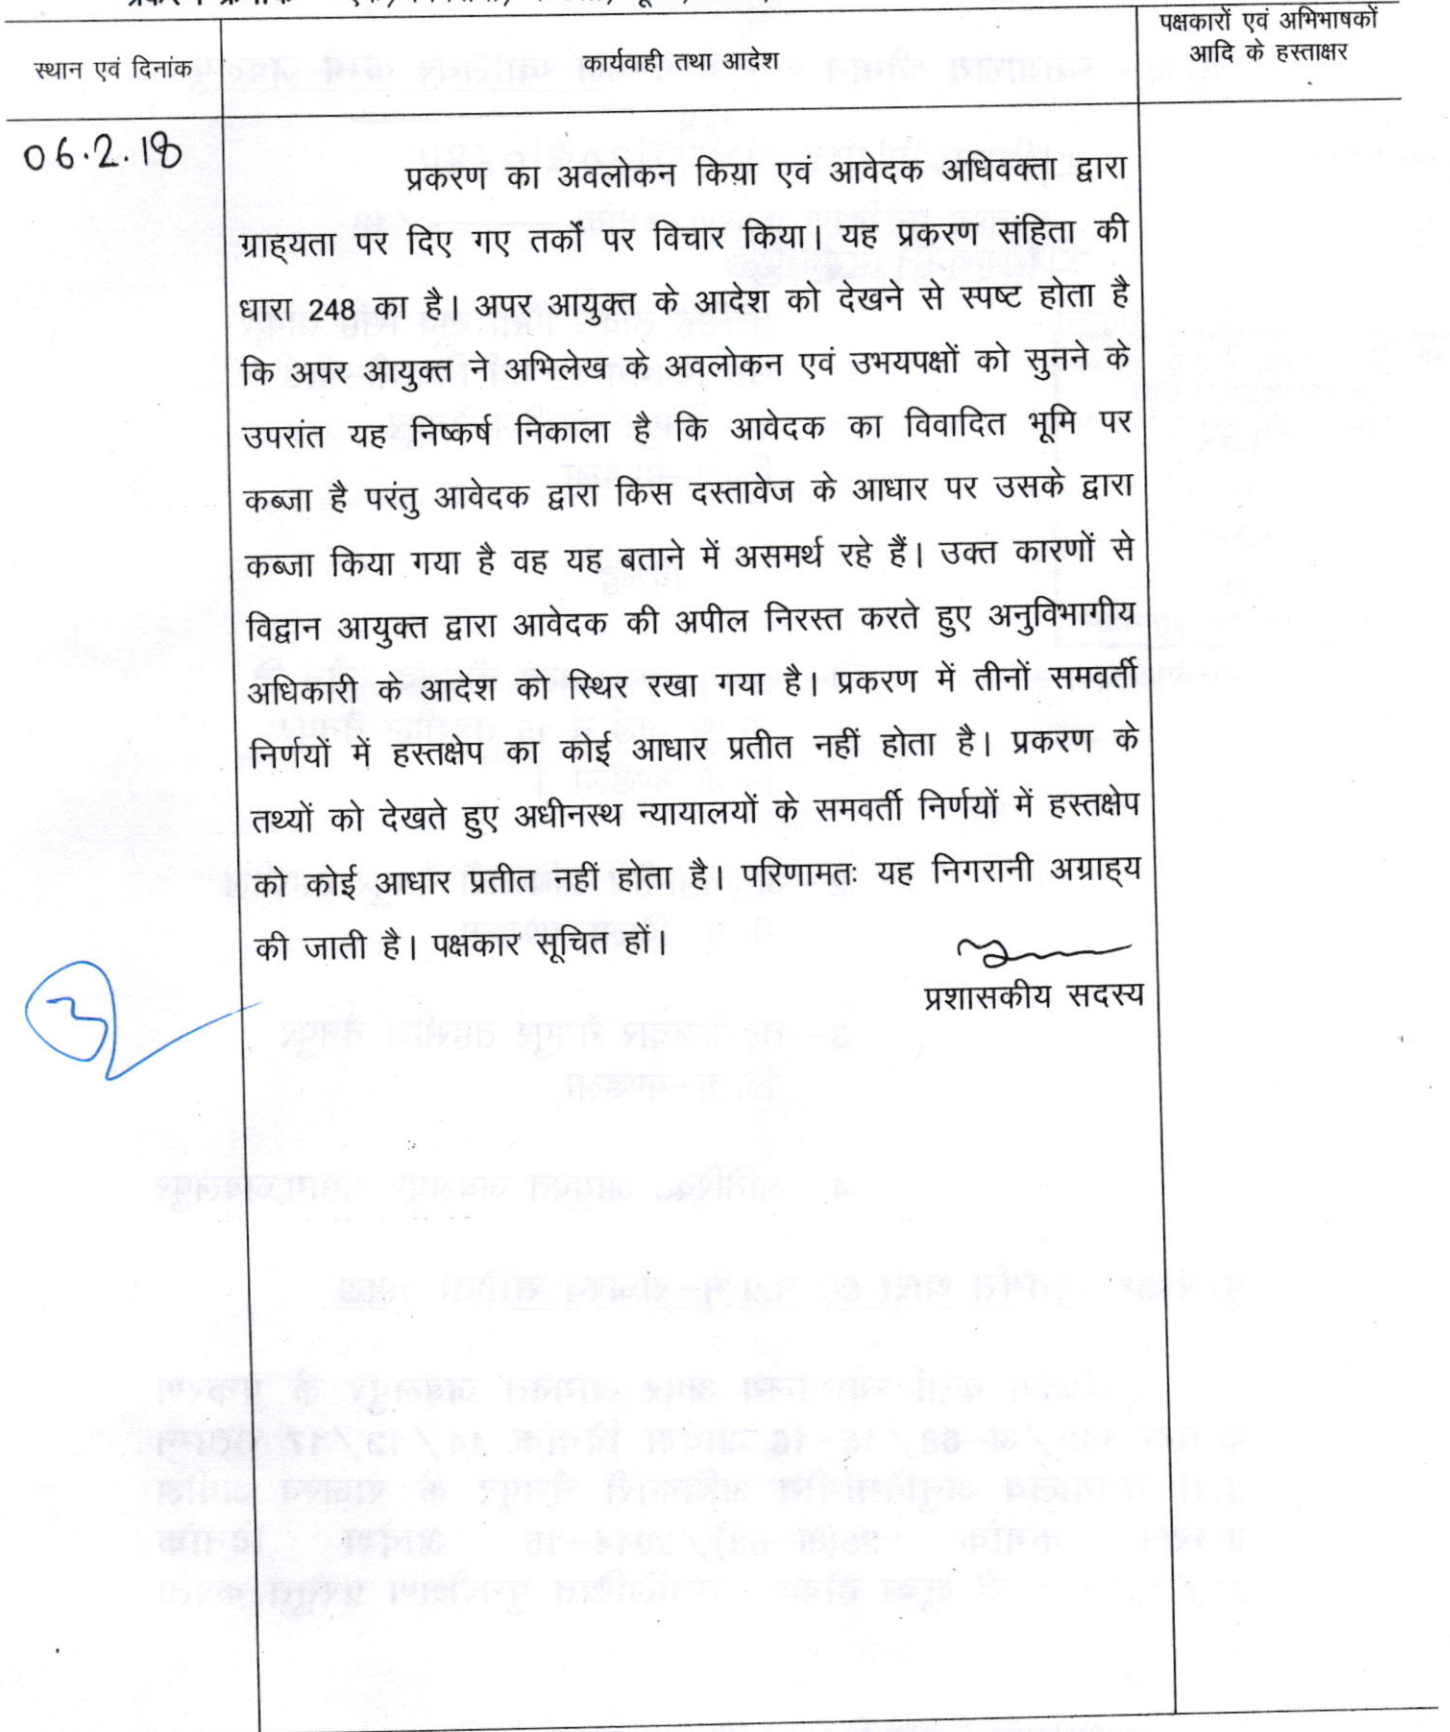 स्थान एवं दिनांक
कार्यवाही तथा आदेश
पक्षकारों एवं अभिभाषकों
आदि के हस्ताक्षर
06.2.18
प्रकरण का अवलोकन किया एवं आवेदक अधिवक्ता द्वारा
ग्राह्यता पर दिए गए तर्कों पर विचार किया। यह प्रकरण संहिता की
धारा 248 का है। अपर आयुक्त के आदेश को देखने से स्पष्ट होता है
कि अपर आयुक्त ने अभिलेख के अवलोकन एवं उभयपक्षों को सुनने के
उपरांत यह निष्कर्ष निकाला है कि आवेदक का विवादित भूमि पर
कब्जा है परंतु आवेदक द्वारा किस दस्तावेज के आधार पर उसके द्वारा
कब्जा किया गया है वह यह बताने में असमर्थ रहे हैं। उक्त कारणों से
विद्वान आयुक्त द्वारा आवेदक की अपील निरस्त करते हुए अनुविभागीय
अधिकारी के आदेश को स्थिर रखा गया है। प्रकरण में तीनों समवर्ती
निर्णयों में हस्तक्षेप का कोई आधार प्रतीत नहीं होता है। प्रकरण के
तथ्यों को देखते हुए अधीनस्थ न्यायालयों के समवर्ती निर्णयों में हस्तक्षेप
को कोई आधार प्रतीत नहीं होता है। परिणामतः यह निगरानी अग्राह्य
की जाती है। पक्षकार सूचित हों।
प्रशासकीय सदस्य